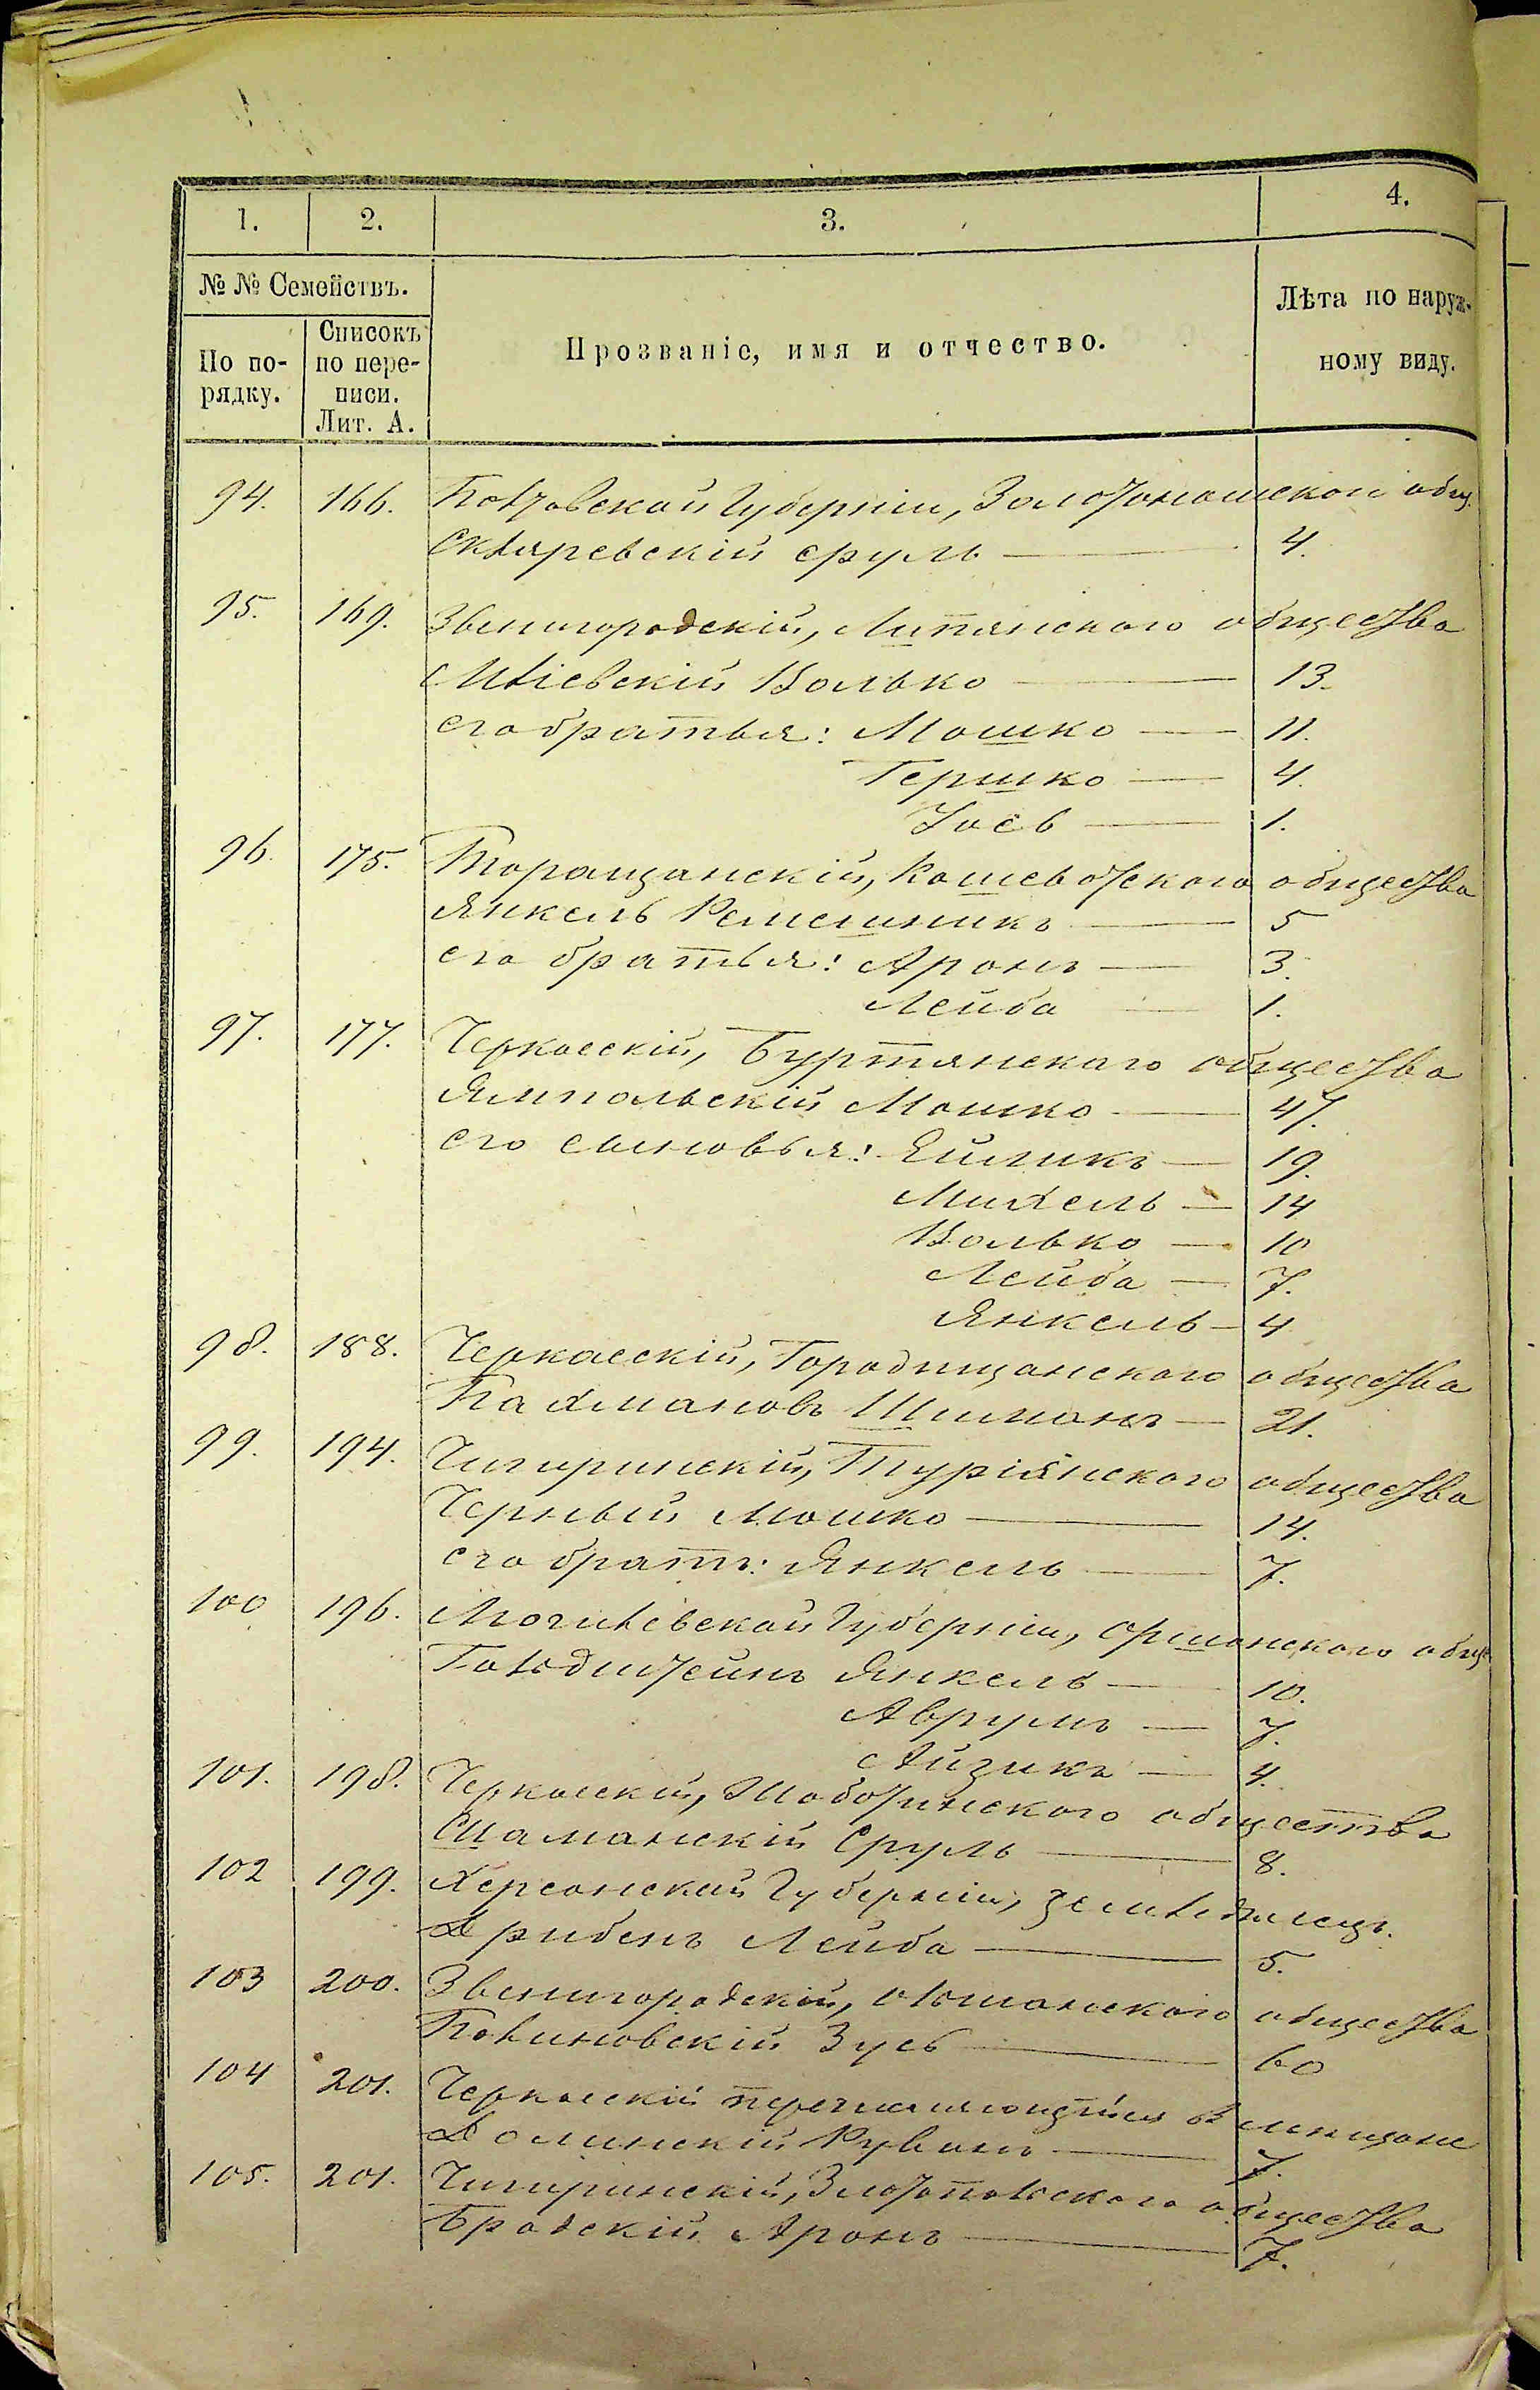 1. 2. 3. 4.
№ № Семействъ.
По по-рядку. Списокъ по пере-писи. Лит. А. Прозваніе, имя и отчество. Лѣта по наруж-ному виду.
94. 166. Полтавской Губерніи, Золотоношской общ.
Скляревскій Сруль — 4.
95. 169. Звенигородскій, Липянского общества
Мліевскій Волько — 13.
его братья: Мошко — 11.
Гершко — 4.
Іось — 1.
96. 175. Таращанскій, Кошеватского общества
Янкель Ременникъ — 5
его братья: Аронъ — 3.
Лейба — 1.
97. 177. Черкасскій, Буртянскаго общества
Ямпольскій Мошко — 47.
его сыновья: Ейликъ — 19.
Михель — 14
Волько — 10
Лейба — 7.
Янкель — 4
98. 188. Черкасскій, Городищанского общества
Пахмановъ Шимонъ — 21.
99. 194. Чигиринскій, Туріянского общества
Черный Мошко — 14.
его братъ: Янкель — 7.
100 196. Могилевской Губерніи, Оршанского общ.
Голодштейнъ Янкель — 10.
Аврумъ — 7.
Айзикъ — 4.
101. 198. Черкасскій, Шаботинского общества
Шаманскій Сруль — 8.
102 199. Херсонской Губерніи, земледѣлецъ.
Дрибенъ Лейба — 5.
103 200. Звенигородскій, Ольшанского общества
Полиновскій Зусь — 60
104 201. Черкасскій перечисляющійся въ мещане
Долинскій Рувинъ — 7.
105. 201. Чигиринскій, Златопольского общества
Бродскій Аронъ — 7.